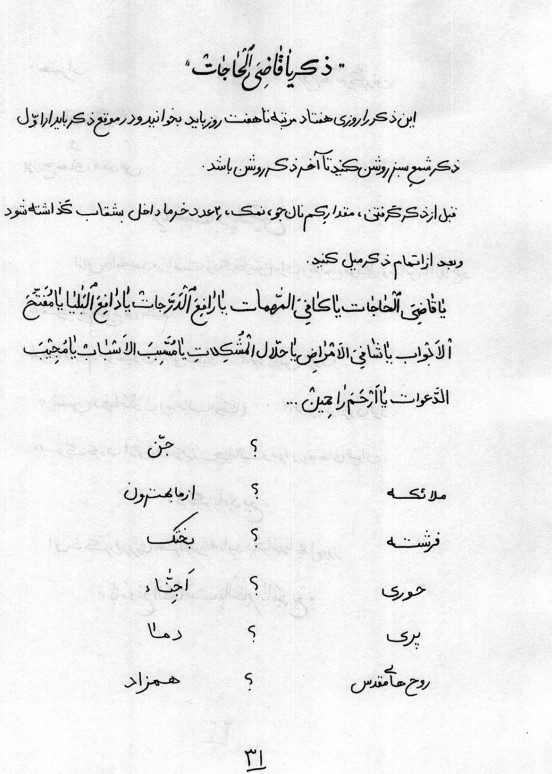 "ذکر یا قاضِیَ الحاجات"
این ذکر را روزی هفتاد مرتبه تا هفت روز باید بخوانید و در موقع ذکر باید از اوّل
ذکر شمع سبز روشن کنید تا آخر ذکر روشن باشد.
قبل از ذکر گرفتن، مقدار کم نان جو، نمک، ۲ عدد خرما داخل بشقاب گذاشته شود
و بعد از اتمام ذکر میل کنید.
یا قاضِیَ الحاجات یا کافِیَ المُهِمات یا رافِعَ الدَّرَجات یا دافِعَ البَلیّا یا مُفَتِّحَ
الاَبواب یا شافِی الاَمراض یا حلال المُشکِلات یا مُسَبِّبَ الاَسباب یا مُجیبَ
الدَّعوات یا اَرحَمَ راحِمین...
؟ جنّ
ملائکه ؟ از ما بهترون
فرشته ؟ بختک
حوری ؟ اَجِنّاء
پری ؟
روح های مقدس ؟ همزاد
۳۱